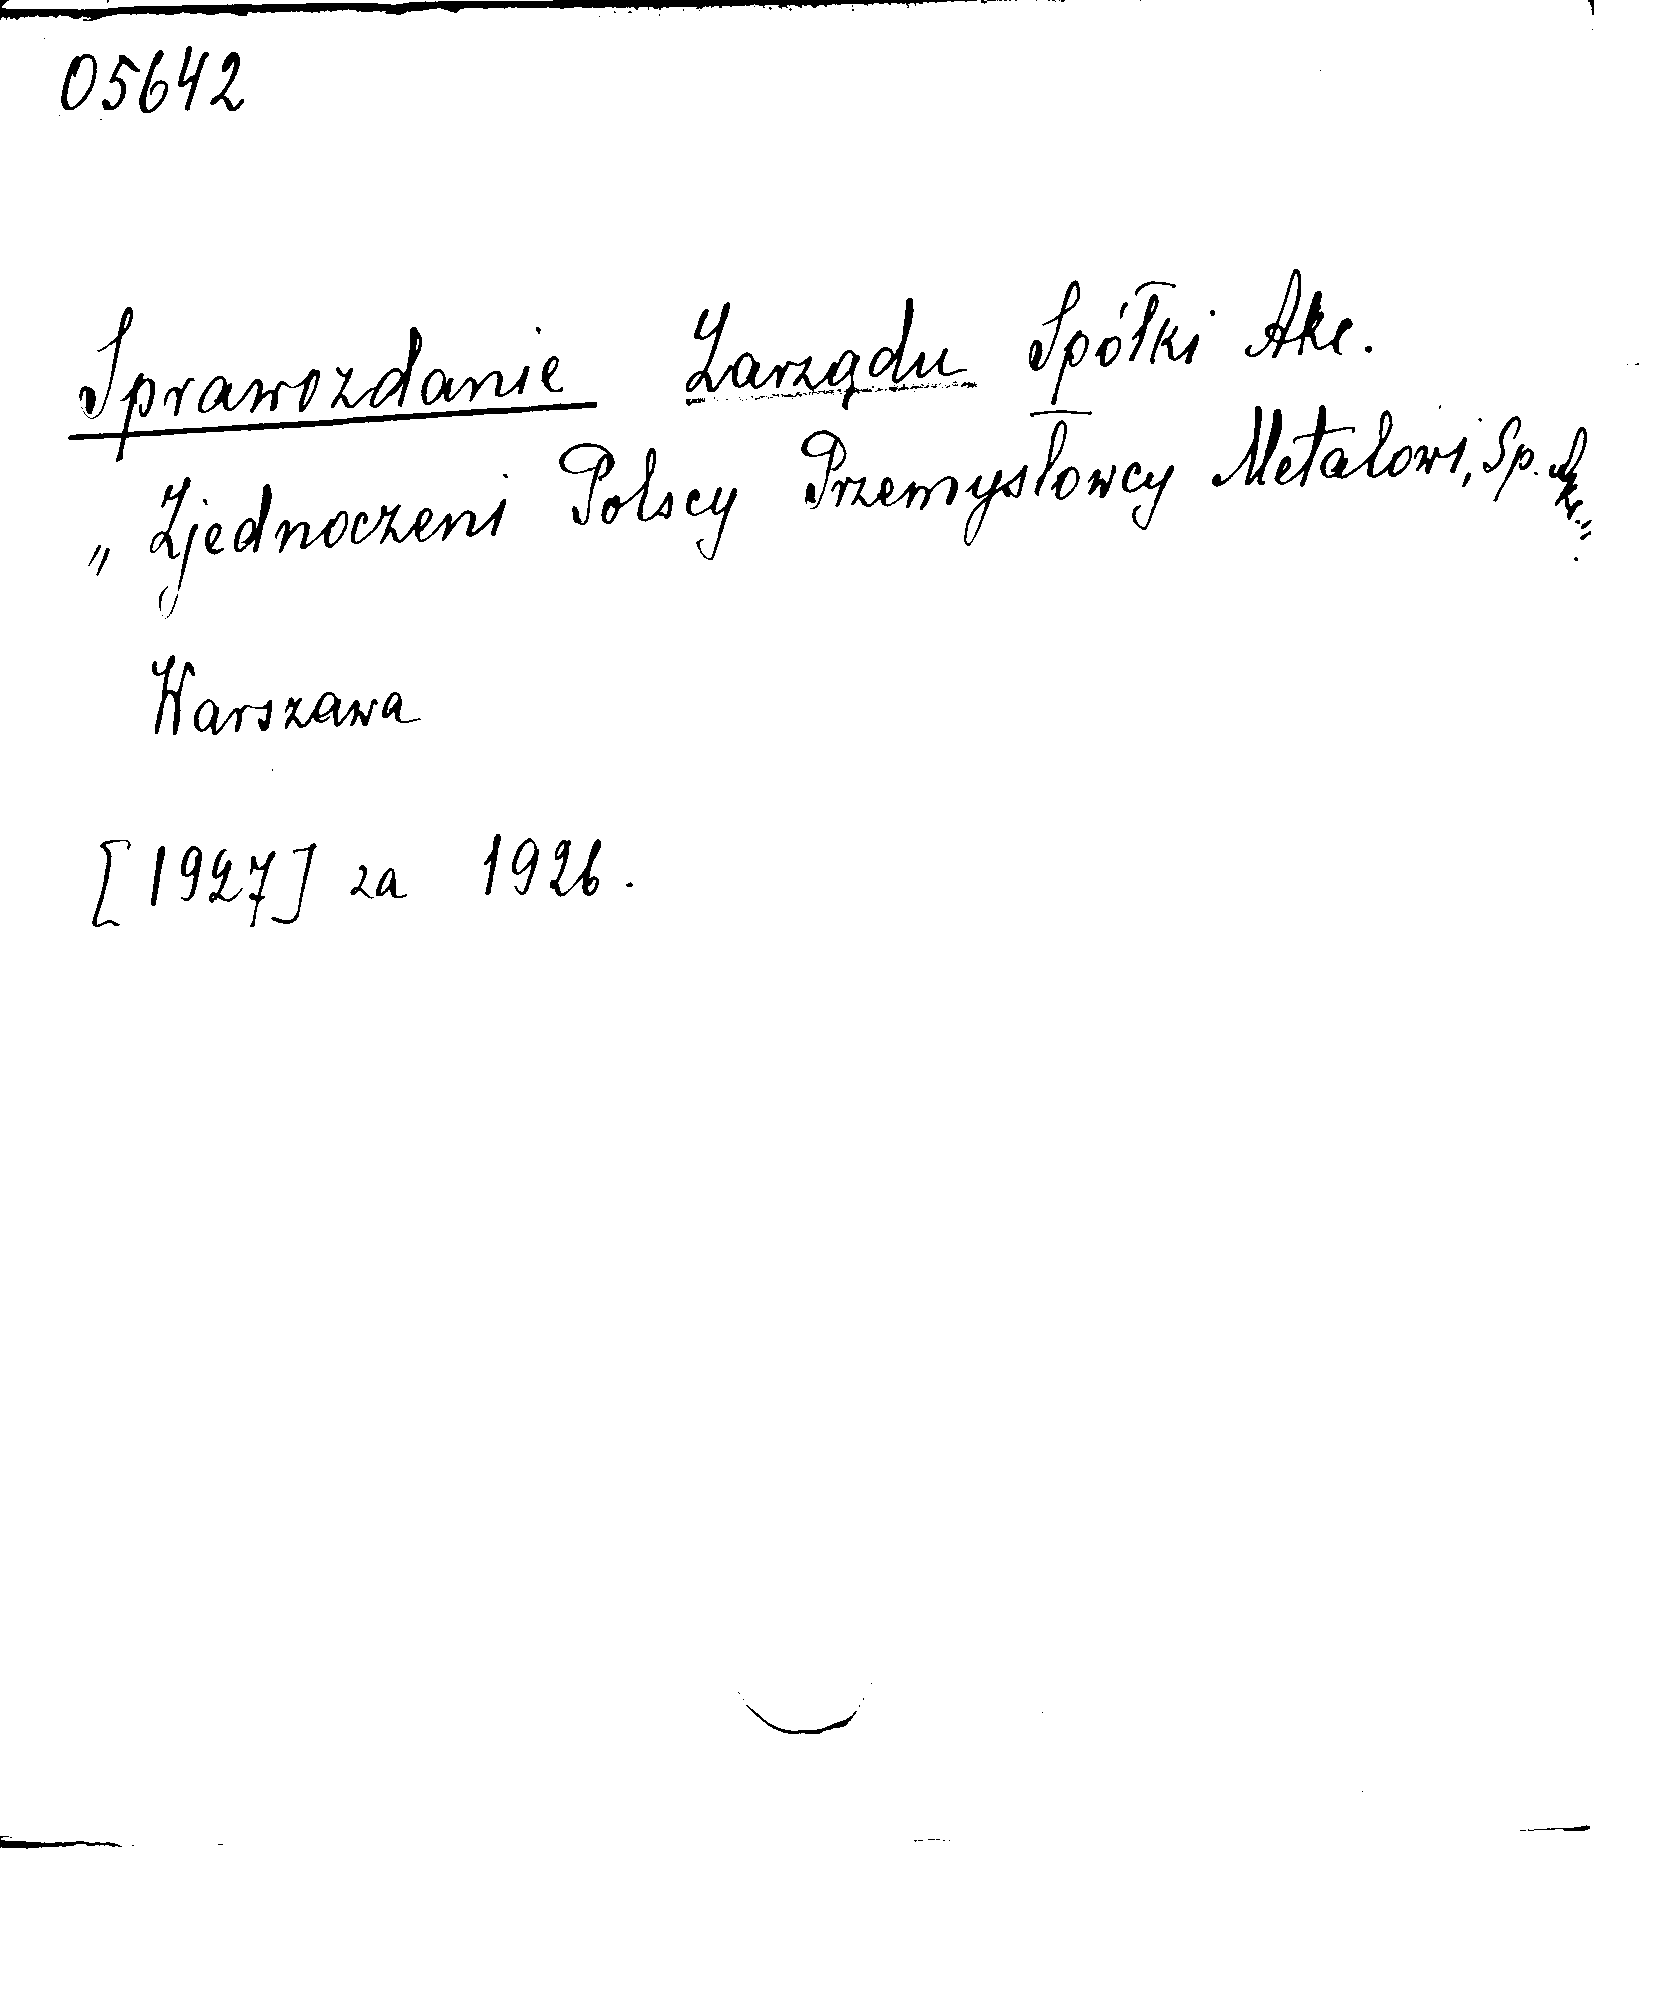 05642
Sprawozdanie Zarządu Spółki Akc.
„Zjednoczeni Polscy Przemysłowcy Metalowi, Sp. Akc.”
Warszawa
[1927] za 1926.